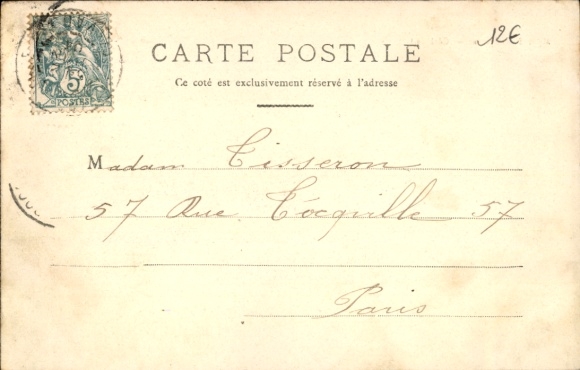 12€
5c
POSTES
CARTE POSTALE
Ce coté est exclusivement réservé à l'adresse
Madam Tisseron
57 Rue Tocqville 57
Paris